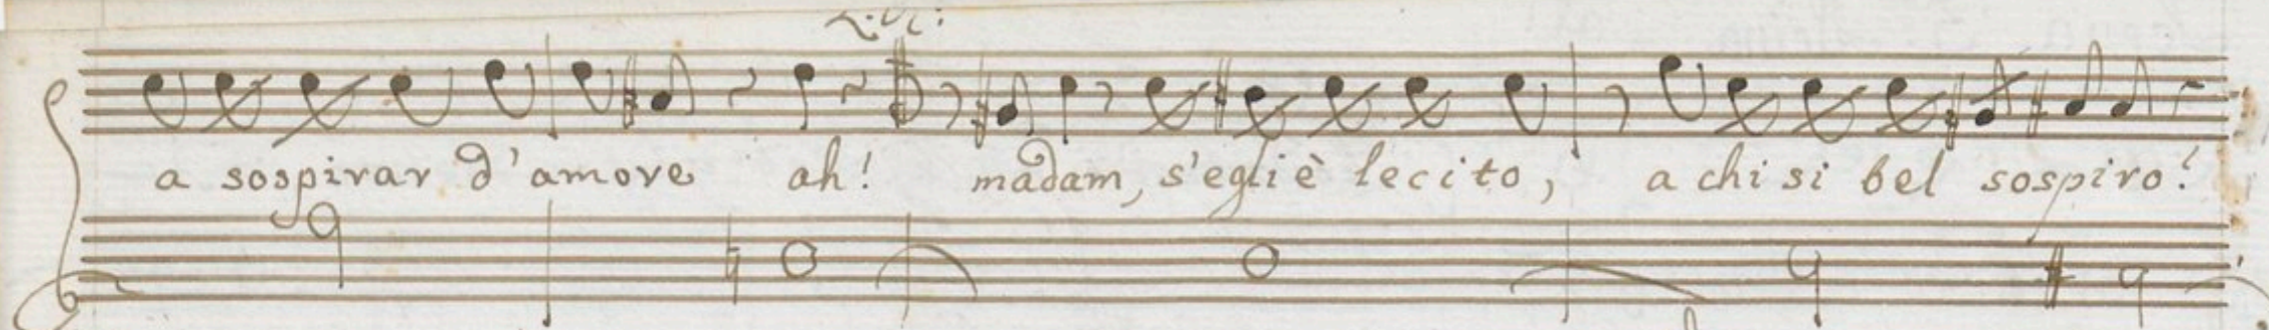 a sospirar d'amore ah! madam, s'egli è lecito, a chi si bel sospiro?